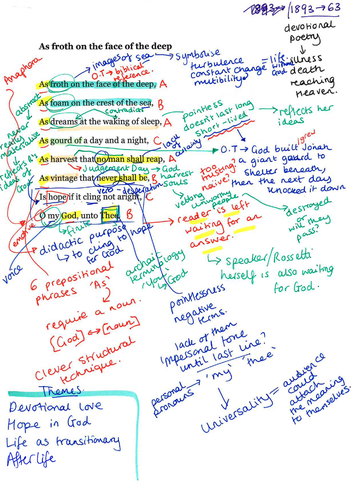 1893 → 63
devotional
poetry
↓
illness
death
reaching
Heaven.
As froth on the face of the deep
Anaphora
images of sea → Symbolise
turbulence
constant change
mutability
= life
without
God
O.T → biblical
reference.
As froth on the face of the deep, A
As foam on the crest of the sea, B
As dreams at the waking of sleep, A
As gourd of a day and a night, C
As harvest that no man shall reap, A
As vintage that never shall be, B
Is hope if it cling not aright, C
O my God, unto Thee. B
never
really
materialise
reflects
ideas
God
contradicts
pointless
doesn't last long
short-lived
→ reflects her
ideas
lack of
clarity
→ O.T → God built Jonah
a giant gourd to
shelter beneath,
then the next day
knocked it down
Judgement Day → God
harvest
souls
verb - desperation
too
trusting?
naive?
people
destroyed
or will
they
pass?
reader is left
waiting for an
answer.
↳ speaker/Rossetti
herself is also waiting
for God.
voice
didactic purpose
↳ to cling to hope
for God
archaic
terminology
'you'
God
6 prepositional
phrases 'As'
↓
require a noun.
[God] ↔ [noun]
↓
Clever structural
technique.
pointlessness
negative
terms.
lack of them
'impersonal tone
until last line?
↳ 'my' 'thee'
personal
pronouns
Universality = audience
could
attach
the meaning
to themselves
Themes
Devotional love
Hope in God
Life as transitionary
Afterlife